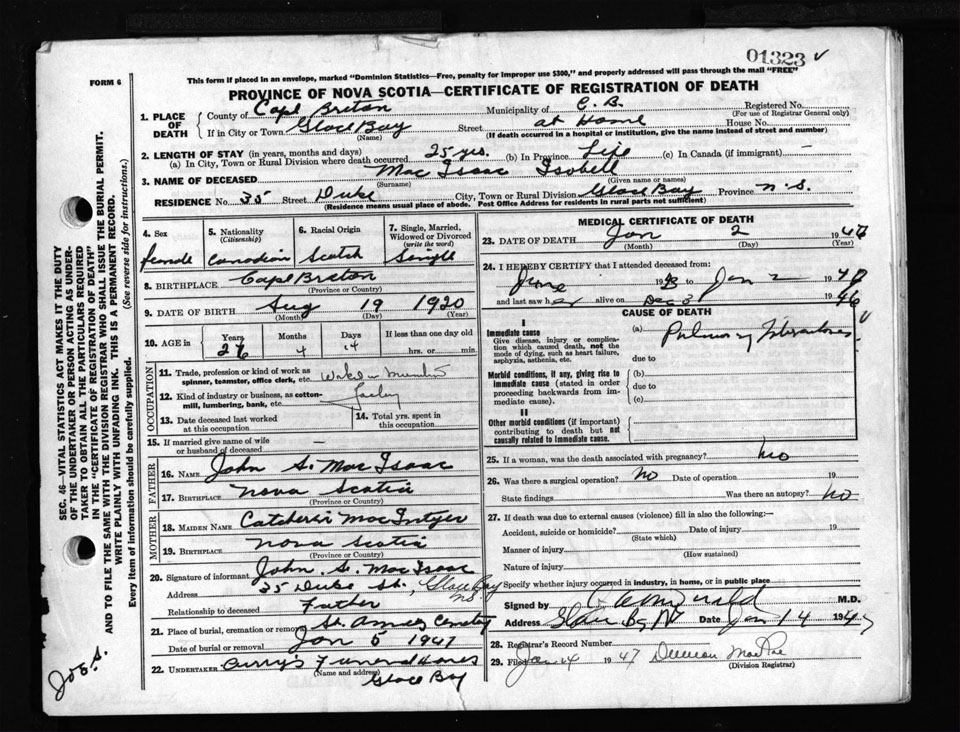 01323 v
FORM 6
This form if placed in an envelope, marked "Dominion Statistics—Free, penalty for improper use $300," and properly addressed will pass through the mail "FREE"
PROVINCE OF NOVA SCOTIA—CERTIFICATE OF REGISTRATION OF DEATH
1. PLACE OF DEATH
County of Cape Breton Municipality of C. B. Registered No.
(For use of Registrar General only)
If in City or Town Glace Bay Street at Home House No.
(Name) (If death occurred in a hospital or institution, give the name instead of street and number)
2. LENGTH OF STAY (in years, months and days)
(a) In City, Town or Rural Division where death occurred 25 yrs. (b) In Province Life (c) In Canada (if immigrant) —
3. NAME OF DECEASED Mac Isaac Isobell
(Surname) (Given name or names)
RESIDENCE No. 35 Street Duke City, Town or Rural Division Glace Bay Province N.S.
(Residence means usual place of abode. Post Office Address for residents in rural parts not sufficient)
4. Sex female
5. Nationality (Citizenship) Canadian
6. Racial Origin Scotch
7. Single, Married, Widowed or Divorced (write the word) Single
8. BIRTHPLACE Cape Breton
(Province or Country)
9. DATE OF BIRTH Aug 19 1920
(Month) (Day) (Year)
10. AGE in Years 26 Months 4 Days 14 If less than one day old hrs. or min.
OCCUPATION
11. Trade, profession or kind of work as spinner, teamster, office clerk, etc.
12. Kind of industry or business, as cotton-mill, lumbering, bank, etc.
13. Date deceased last worked at this occupation
14. Total yrs. spent in this occupation
15. If married give name of wife or husband of deceased —
FATHER
16. NAME John S. Mac Isaac
17. BIRTHPLACE Nova Scotia
(Province or Country)
MOTHER
18. MAIDEN NAME Catherin MacIntyer
19. BIRTHPLACE Nova Scotia
(Province or Country)
20. Signature of informant John S. Mac Isaac
Address 35 Duke St., Glace Bay NS
Relationship to deceased Father
21. Place of burial, cremation or removal St. Annes Cemetery
Date of burial or removal Jan 5 1947
22. UNDERTAKER Curry's Funeral Homes
(Name and address) Glace Bay
MEDICAL CERTIFICATE OF DEATH
23. DATE OF DEATH Jan 2 1947
(Month) (Day) (Year)
24. I HEREBY CERTIFY that I attended deceased from:
June 19 to Jan 2 1947
and last saw her alive on Dec 3 1946
CAUSE OF DEATH
I
Immediate cause
Give disease, injury or complication which caused death, not the mode of dying, such as heart failure, asphyxia, asthenia, etc.
(a) Pulmonary Tuberculosis
due to
Morbid conditions, if any, giving rise to immediate cause (stated in order proceeding backwards from immediate cause).
(b)
due to
(c)
II
Other morbid conditions (if important) contributing to death but not causally related to immediate cause.
25. If a woman, was the death associated with pregnancy? No
26. Was there a surgical operation? No Date of operation 19
State findings Was there an autopsy? No
27. If death was due to external causes (violence) fill in also the following:—
Accident, suicide or homicide? Date of injury 19
(State which)
Manner of injury
(How sustained)
Nature of injury
Specify whether injury occurred in industry, in home, or in public place
Signed by M.D.
Address Glace Bay NS Date Jan 14 1947
28. Registrar's Record Number
29. Filed Jan 14 1947 Duncan MacRae
(Division Registrar)
SEC. 46—VITAL STATISTICS ACT MAKES IT THE DUTY
OF THE UNDERTAKER OR PERSON ACTING AS UNDER-
TAKER TO OBTAIN ALL THE PARTICULARS REQUIRED
IN THE "CERTIFICATE OF REGISTRATION OF DEATH"
AND TO FILE THE SAME WITH THE DIVISION REGISTRAR WHO SHALL ISSUE THE BURIAL PERMIT.
WRITE PLAINLY WITH UNFADING INK. THIS IS A PERMANENT RECORD.
Every item of information should be carefully supplied. (See reverse side for instructions.)